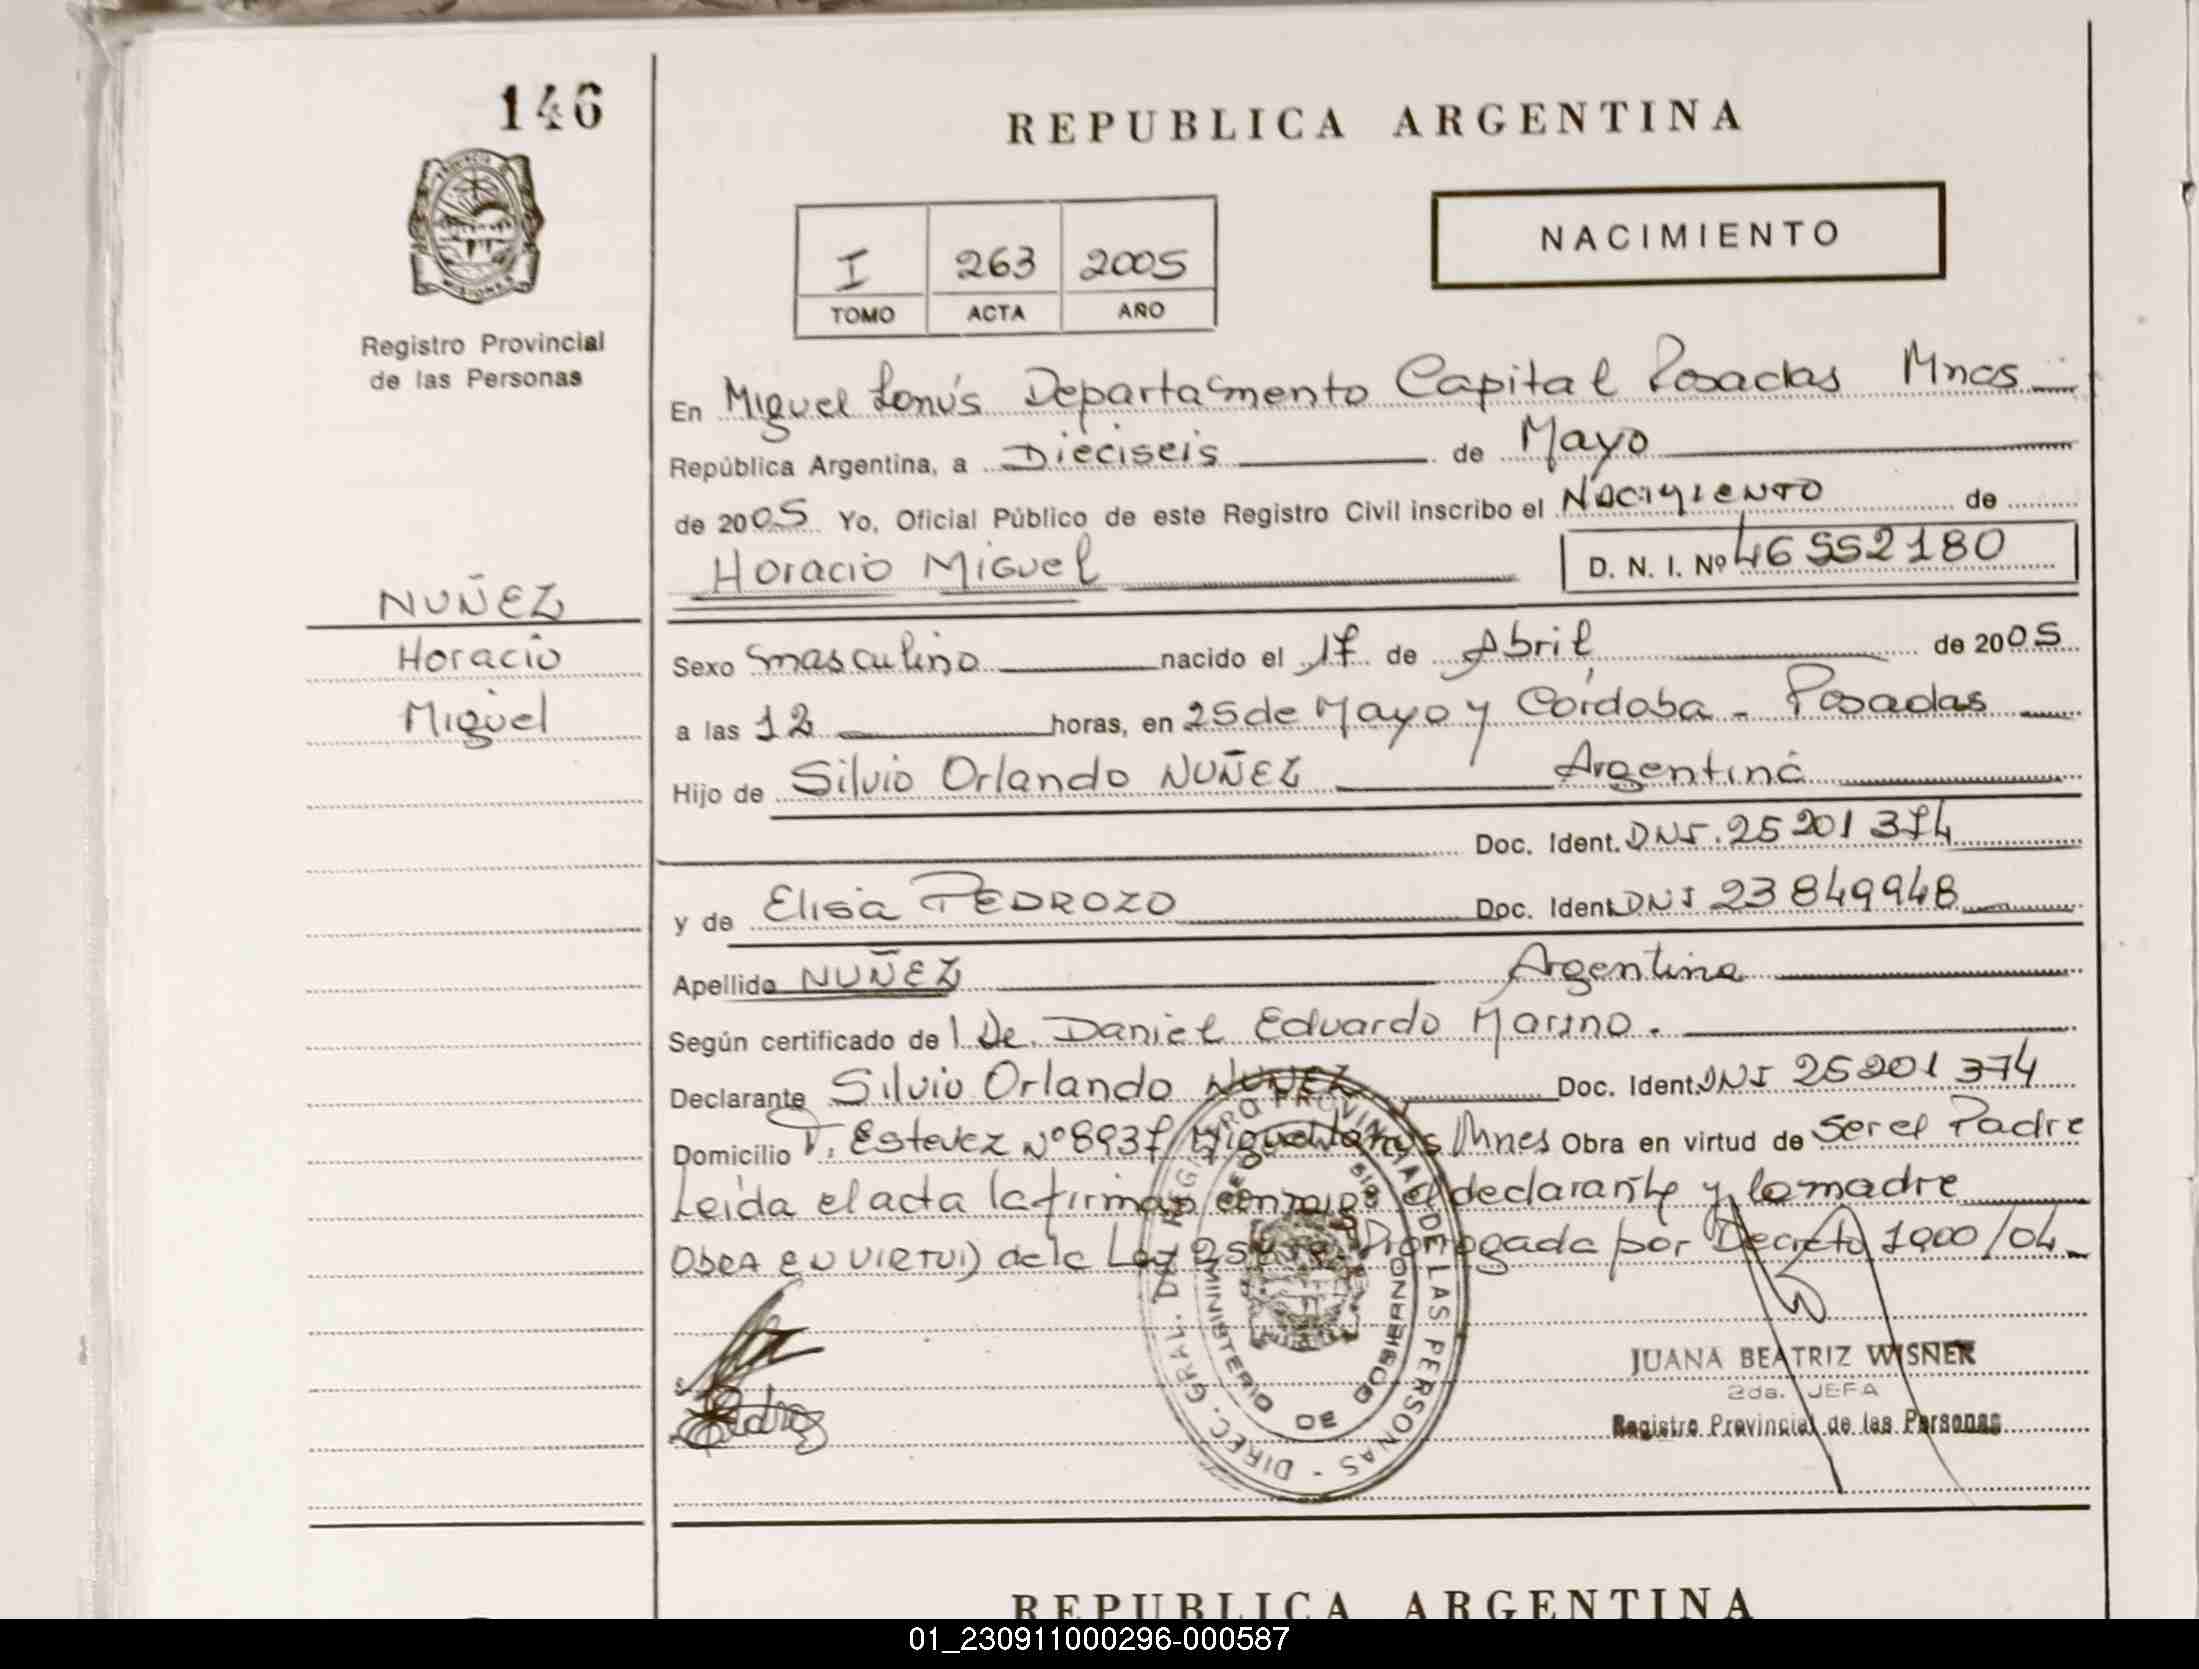 146
REPUBLICA ARGENTINA
NACIMIENTO
I 263 2005
TOMO ACTA AÑO
PROVINCIA
MISIONES
Registro Provincial
de las Personas
En Miguel Lanús Departamento Capital Posadas Mnes
República Argentina, a Dieciseis de Mayo
de 2005 Yo, Oficial Público de este Registro Civil inscribo el Nacimiento de
Horacio Miguel D. N. I. Nº 46552180
NUÑEZ
Horacio
Miguel
Sexo masculino nacido el 17 de Abril de 2005
a las 12 horas, en 25 de Mayo y Córdoba - Posadas
Hijo de Silvio Orlando NUÑEZ Argentina
Doc. Ident. DNI. 25201374
y de Elisa PEDROZO Doc. Ident. DNI 23849948
Apellido NUÑEZ Argentina
Según certificado de l De. Daniel Eduardo Marino.
Declarante Silvio Orlando NUÑEZ Doc. Ident. DNI 25201374
Domicilio T. Estevez Nº 8937 Miguel Lanus Mnes Obra en virtud de ser el Padre
Leída el acta la firman conmigo el declarante y la madre
OBRA EN VIRTUD de la Ley Prorrogada por Decreto 1900/04
DIREC. GRAL. DEL REGISTRO PROVINCIAL DE LAS PERSONAS
MINISTERIO DE GOBIERNO
JUANA BEATRIZ WISNER
2da. JEFA
Registro Provincial de las Personas
REPUBLICA ARGENTINA
01_230911000296-000587